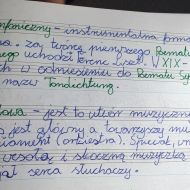 mfoniczny - instrumentalna forma
wa. Za twórcę pierwszego Poematu
ego uchodzi Ferenc Liszt. W XIX-
ch w odniesieniu do Poematu Sy
nazw Tondichtung.
łowa - jest to utwór muzyczny
jest głos i a towarzyszy mu
ament (orkiestra). Śpiewał,
wesołą i skoczną muzyczką
ał serca słuchaczy.